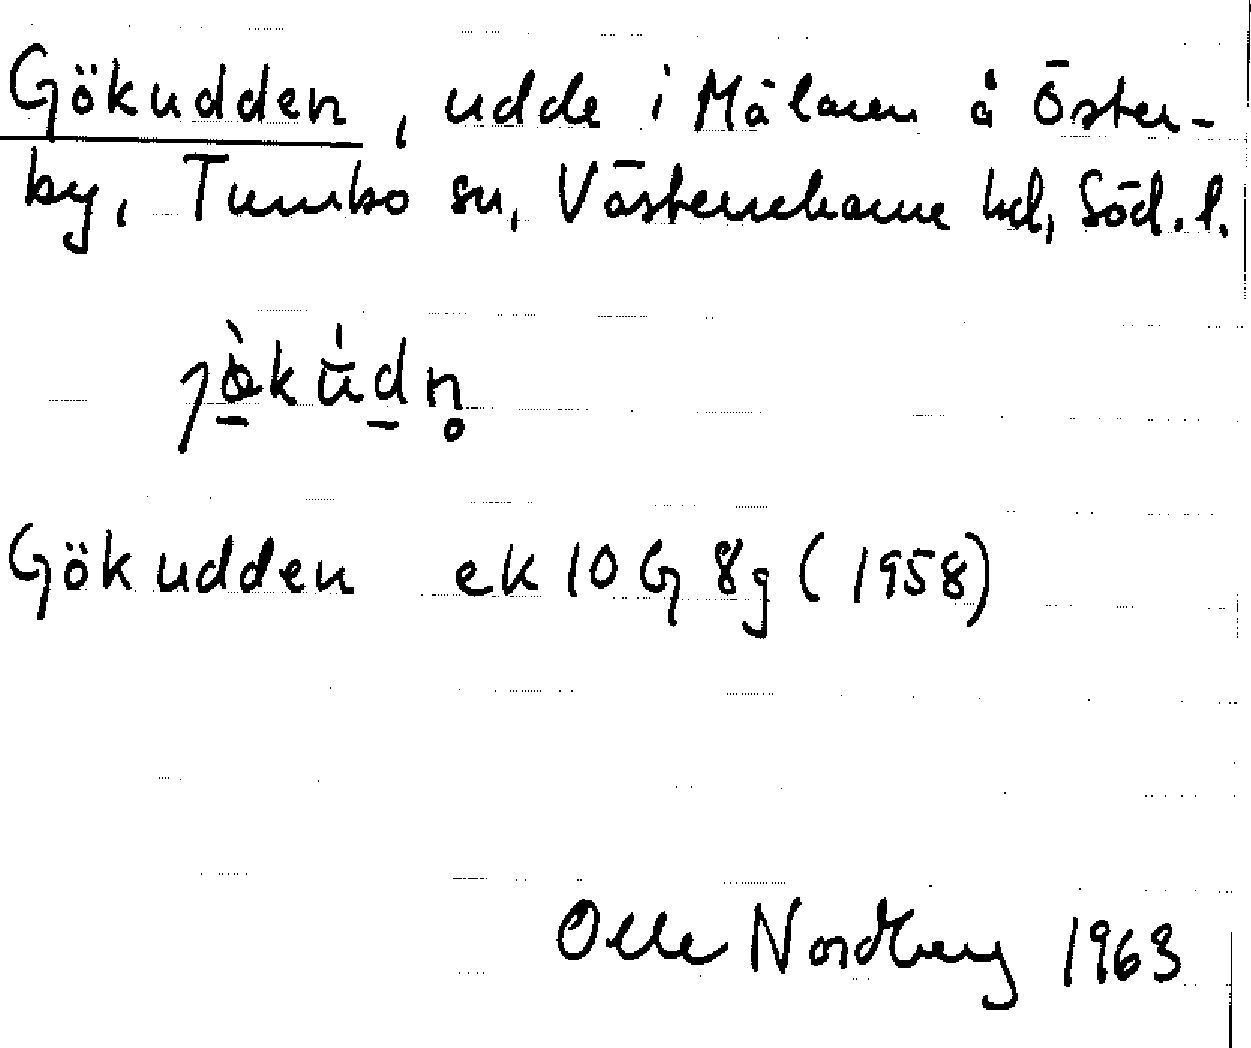 Gökudden, udde i Mälaren å Öster-
by, Tumbo sn, Västerrekarne hd, Söd. l.
Gökudden ek 10 G 8g (1958)
Olle Nordberg 1963